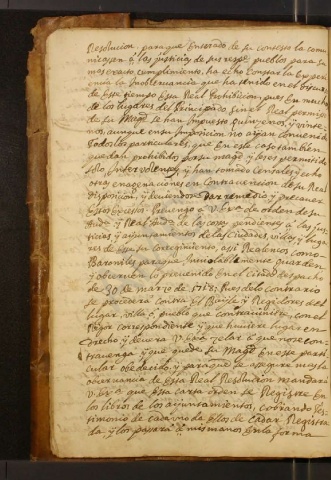 Resolucion, para que enterado de su contexto la comu
nicasen a las justicias de sus resp. pueblos para su
mas exacto cumplimiento, ha echo constar la experi
encia la inobservancia que ha tenido en el discurso
de este tiempo esta Real Prohibicion, pues en muchos
de los lugares del Principado sin el Real permiso
de su Mag.d se han impuesto quinzenos, y vinte
nos, aunque en su imposicion no ayan convenido
todos los particulares, que en este caso tambien
quedan prohibidos por su mag.d y se les permitido
solo inter volentes, y han tomado Censales y echo
otras enagenaciones en Contravencion de su Real
disposicion, y deviendose Dar remedio y precaver
estos excesos Prevengo a V. de orden de su
las cartas pendientes a las jus
ticias y ayuntamientos de las Ciudades villas, y luga
res de esse su Corregimiento, assi Realencos como
Baroniles para que Inviolablemente guarden
y observen lo prevenido en el Citado despacho
de 30 de marzo de 1718, pues de lo contrario
se procedera contra el Bayle y Regidores del
lugar, villa o pueblo que contraviniere, con el
rigor correspondiente y que huviere lugar en
Drecho, y devera V. zelar a que no se con
travenga, y que quede su Mag.d en esse parti
cular obedecido, y para que se assegure mas la
observancia de esta Real Resolucion mandara
V. que esta carta orden se Registre en
los libros de los ayuntamientos, cobrando tes
timonio de cada uno de ellos de Cadar Registra
da y los passara a mis manos en la forma